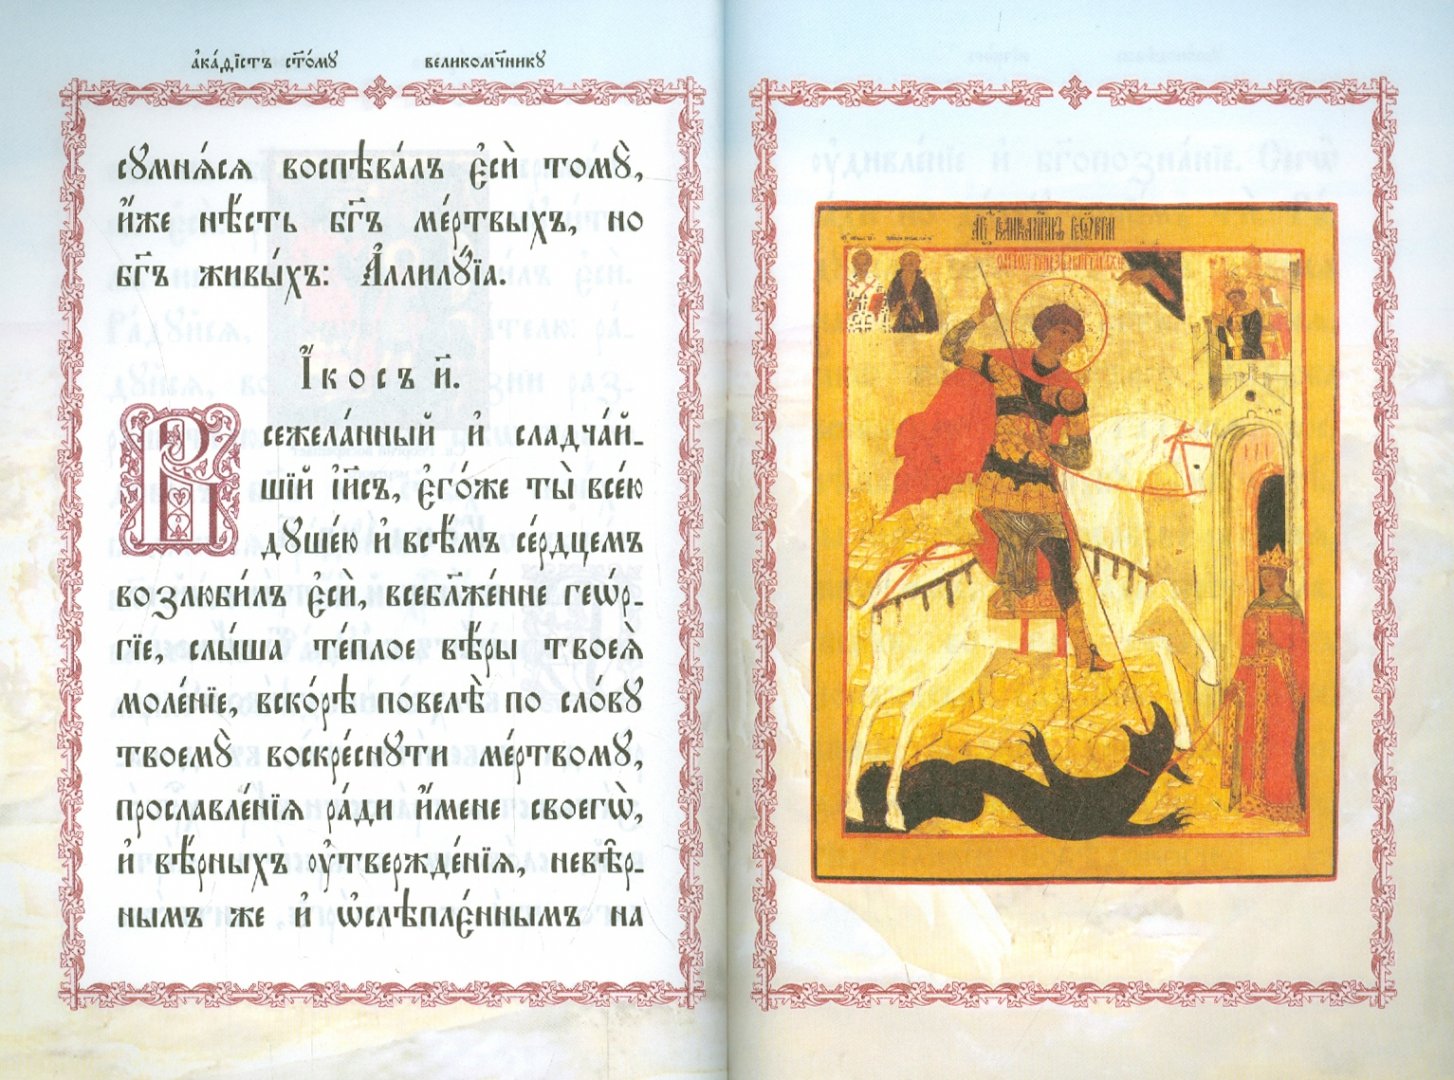 а҆ка́ѳїстъ ст҃о́мꙋ великомч҃никꙋ
сꙋмнѧ́сѧ воспѣва́лъ є҆сѝ томꙋ̀,
и҆́же нѣ́сть бг҃ъ ме́ртвыхъ, но
бг҃ъ живы́хъ: А҆ллилꙋ́їа.
І҆́косъ и҃.
Всежела́нный и҆ сладча́й-
шїй і҆и҃съ, є҆го́же ты̀ все́ю
дꙋше́ю и҆ всѣ́мъ се́рдцемъ
возлюби́лъ є҆сѝ, всебл҃же́нне геѡ́р-
гїе, слы́ша те́плое вѣ́ры твоеѧ̀
моле́нїе, вско́рѣ повелѣ̀ по сло́вꙋ
твоемꙋ̀ воскре́снꙋти ме́ртвомꙋ,
прославле́нїѧ ра́ди и҆́мене своегѡ̀,
и҆ вѣ́рныхъ ᲂу҆твержде́нїѧ, невѣ̑р-
нымъ же и҆ ѡ҆слѣпле́ннымъ на